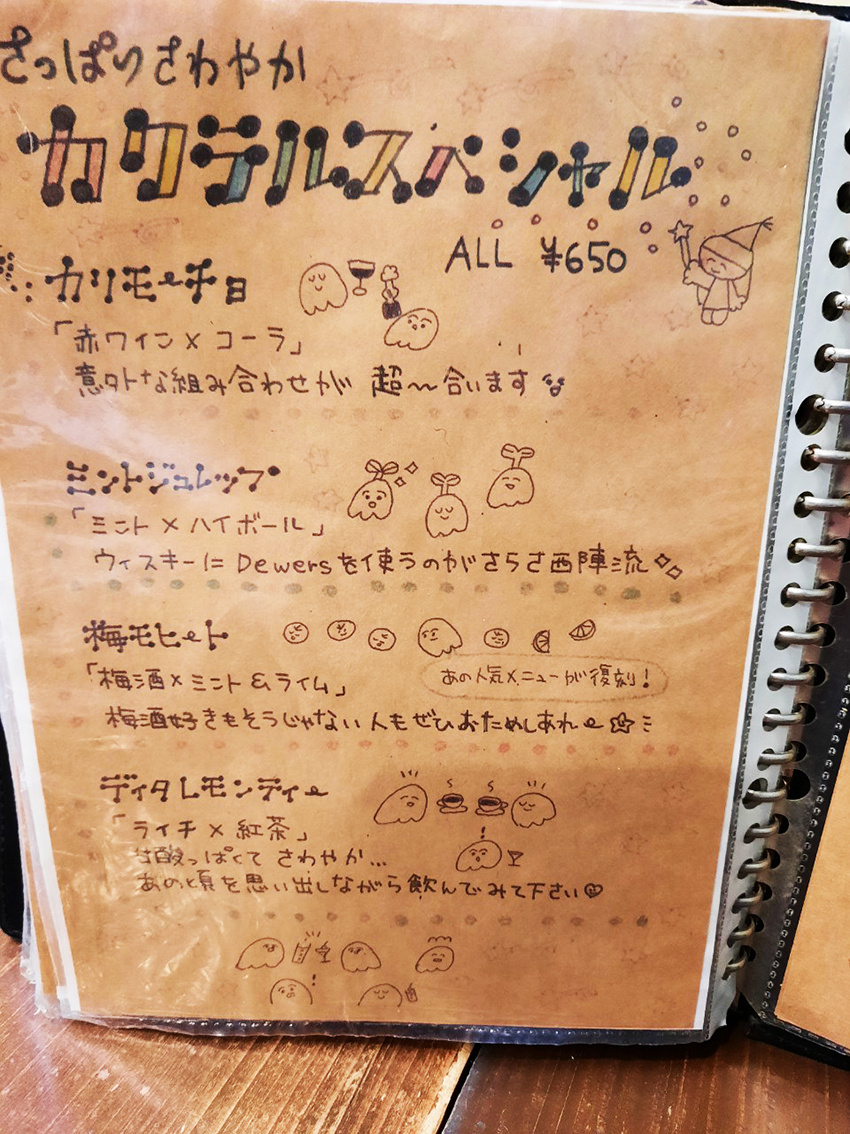 さっぱりさわやか
カクテルスペシャル
ALL ¥650
カリモーチョ
「赤ワイン×コーラ」
意外な組み合わせが 超〜合います
ミントジュレップ
「ミント×ハイボール」
ウィスキーに Dewersを使うのがさらさ西陣流
梅モヒート
「梅酒×ミント&ライム」
あの人気メニューが復刻!
梅酒好きもそうじゃない人もぜひおためしあれ〜
ディタレモンティー
「ライチ×紅茶」
甘酸っぱくて さわやか...
あの頃を思い出しながら飲んでみて下さい♡